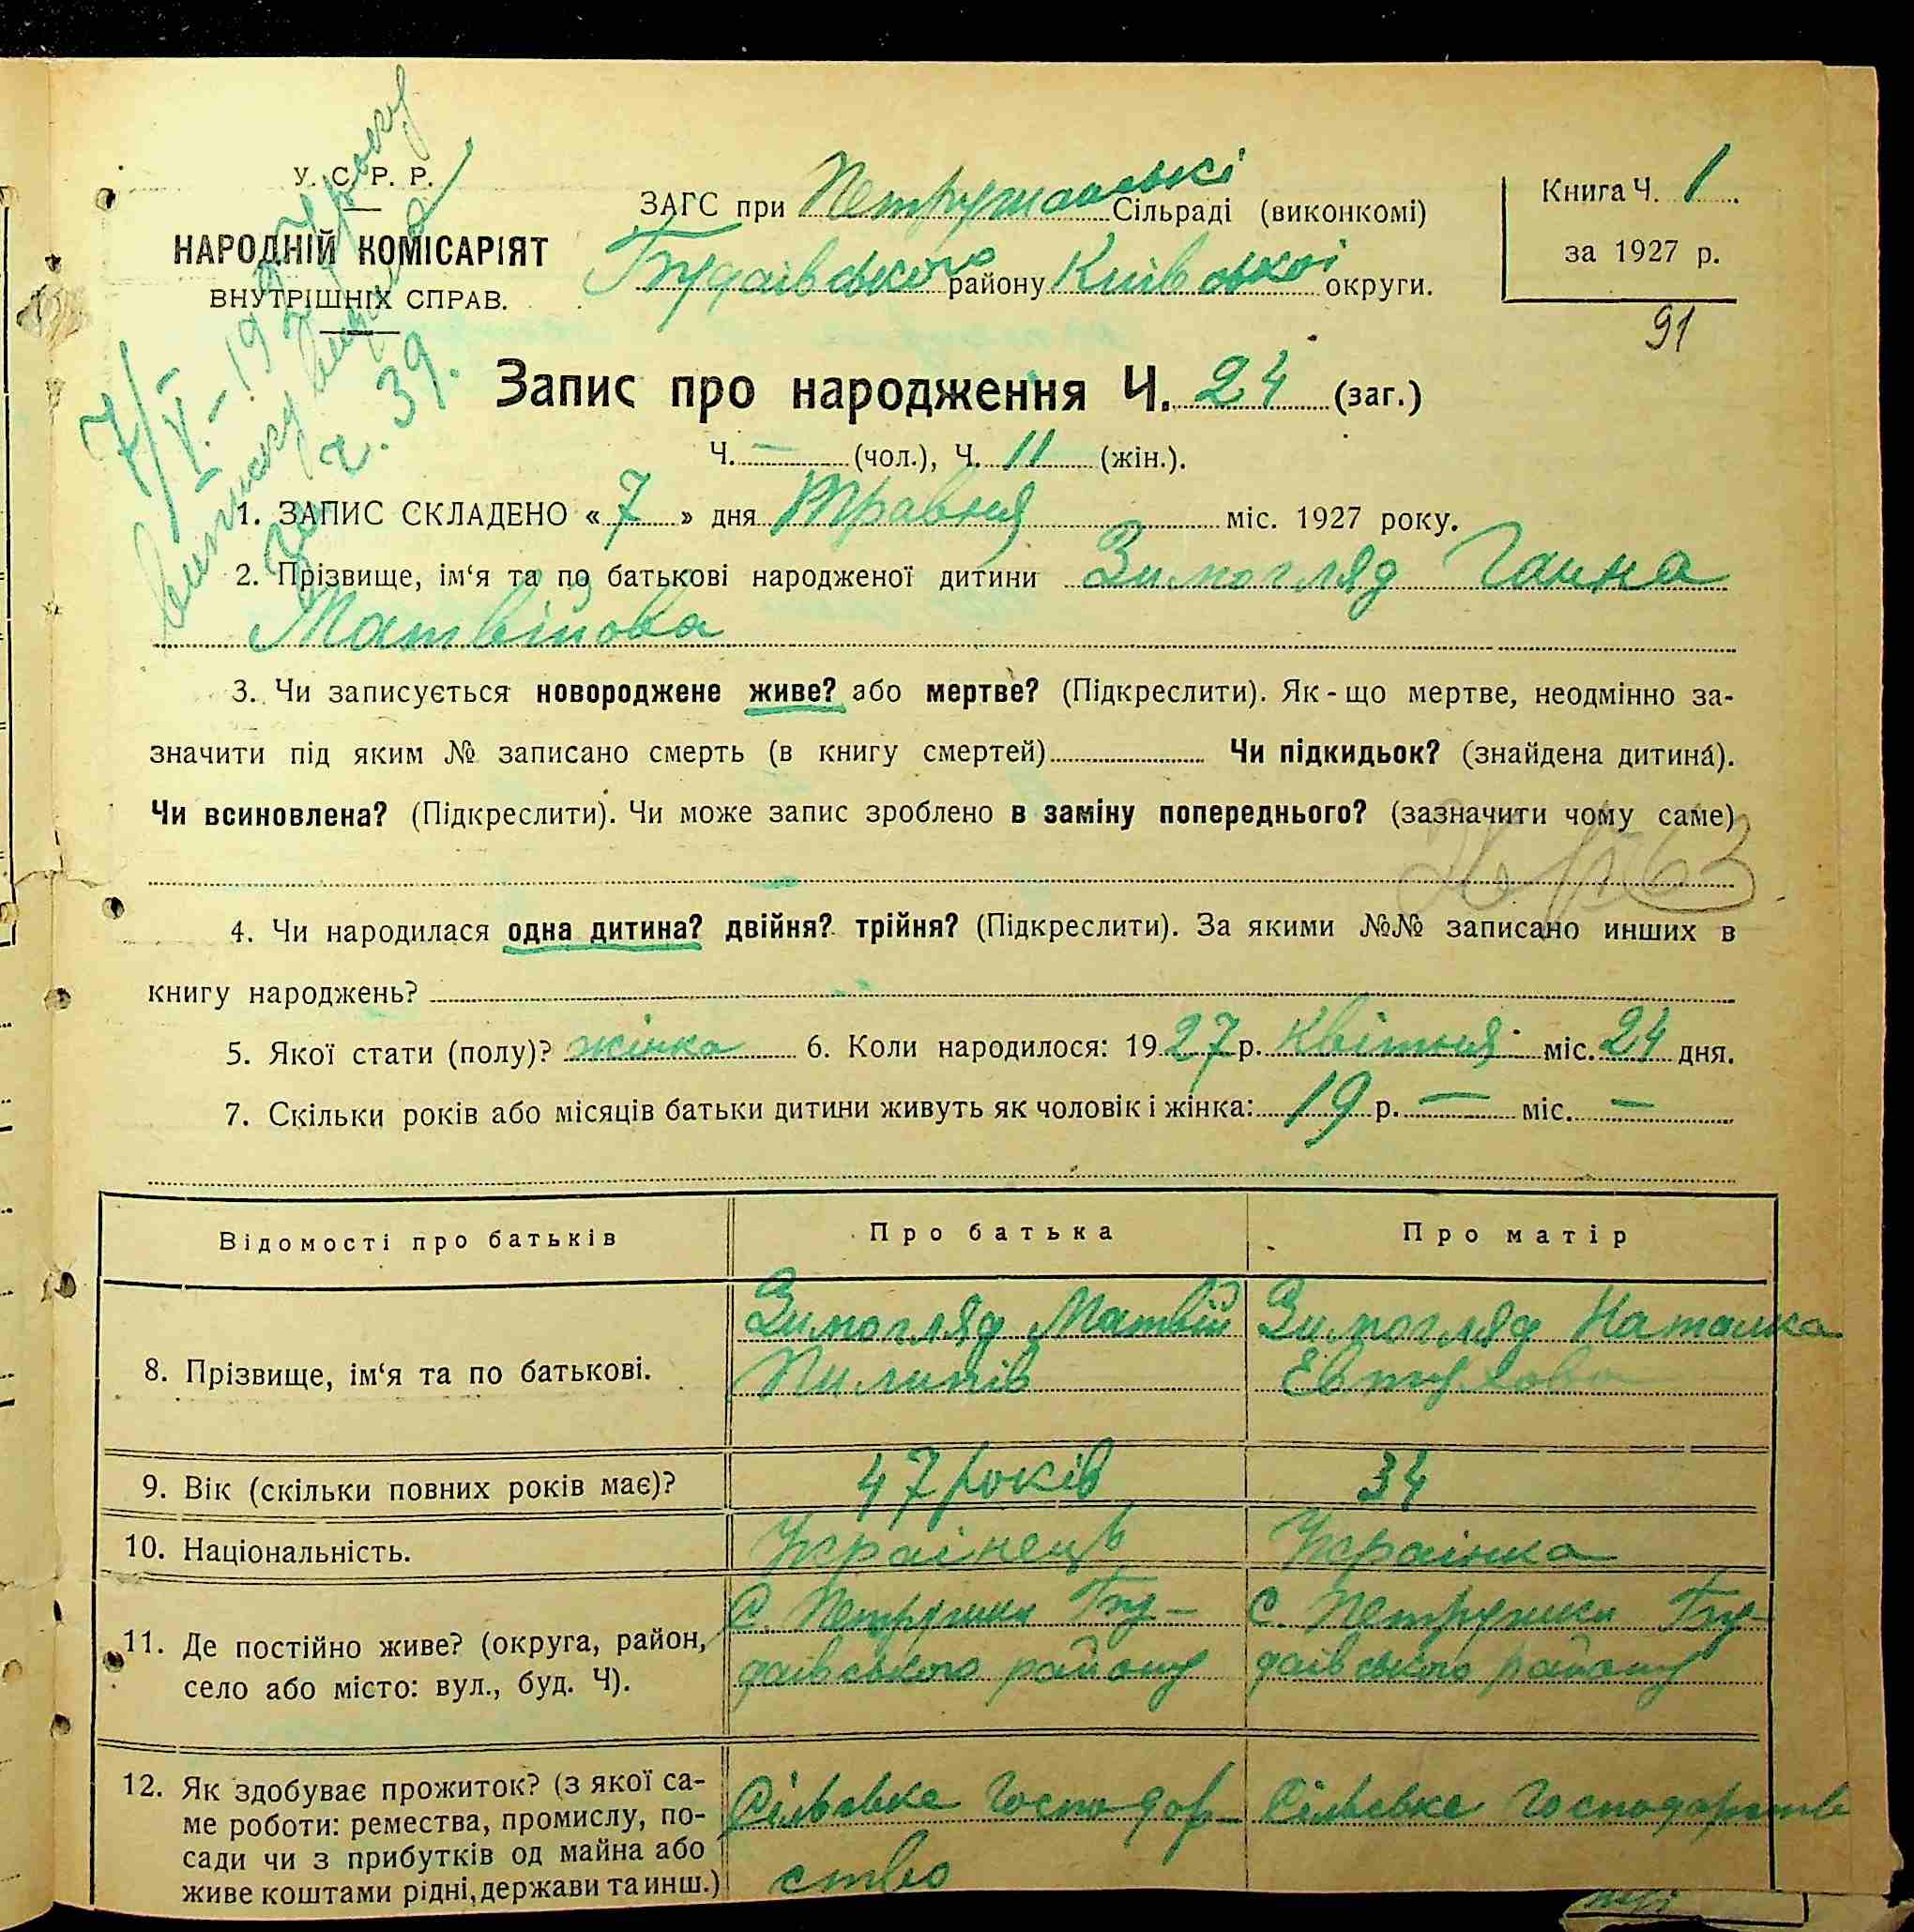 У. С. Р. Р.
НАРОДНІЙ КОМІСАРІЯТ
ВНУТРІШНІХ СПРАВ.
ЗАГС при Петрушанські Сільраді (виконкомі)
Будаівського району Київської округи.
Книга Ч. 1
за 1927 р.
91
7/V.-192
виписку
ч. 39.
Запис про народження Ч. 24 (заг.)
Ч. — (чол.), Ч. 11 (жін.).
1. ЗАПИС СКЛАДЕНО « 7 » дня Травня міс. 1927 року.
2. Прізвище, ім‘я та по батькові народженої дитини Зимогляд Ганна
Матвійова
3. Чи записується новороджене живе? або мертве? (Підкреслити). Як-що мертве, неодмінно за-
значити під яким № записано смерть (в книгу смертей) Чи підкидьок? (знайдена дитина).
Чи всиновлена? (Підкреслити). Чи може запис зроблено в заміну попереднього? (зазначити чому саме)
4. Чи народилася одна дитина? двійня? трійня? (Підкреслити). За якими №№ записано инших в
книгу народжень?
5. Якої стати (полу)? жінка 6. Коли народилося: 1927 р. Квітня міс. 24 дня.
7. Скільки років або місяців батьки дитини живуть як чоловік і жінка: 19 р. — міс. —
Відомості про батьків Про батька Про матір
8. Прізвище, ім‘я та по батькові.
Зимогляд Матвій
Пилипів
Зимогляд Наталка
Евтухова
9. Вік (скільки повних років має)? 47 років 34
10. Національність. Украінець Украінка
11. Де постійно живе? (округа, район,
село або місто: вул., буд. Ч).
С. Петрушки Бу-
даівського району
С. Петрушки Бу-
даівського району
12. Як здобуває прожиток? (з якої са-
ме роботи: ремества, промислу, по-
сади чи з прибутків од майна або
живе коштами рідні, держави та инш.)
Сільське Господар-
ство
Сільське Господарство